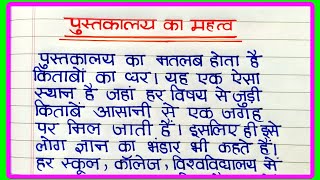 पुस्तकालय का महत्व
पुस्तकालय का मतलब होता है
किताबों का घर। यह एक ऐसा
स्थान है जहां हर विषय से जुड़ी
किताबें आसानी से एक जगह
पर मिल जाती हैं। इसलिए ही इसे
लोग ज्ञान का भंडार भी कहते हैं।
हर स्कूल, कॉलेज, विश्वविद्यालय में